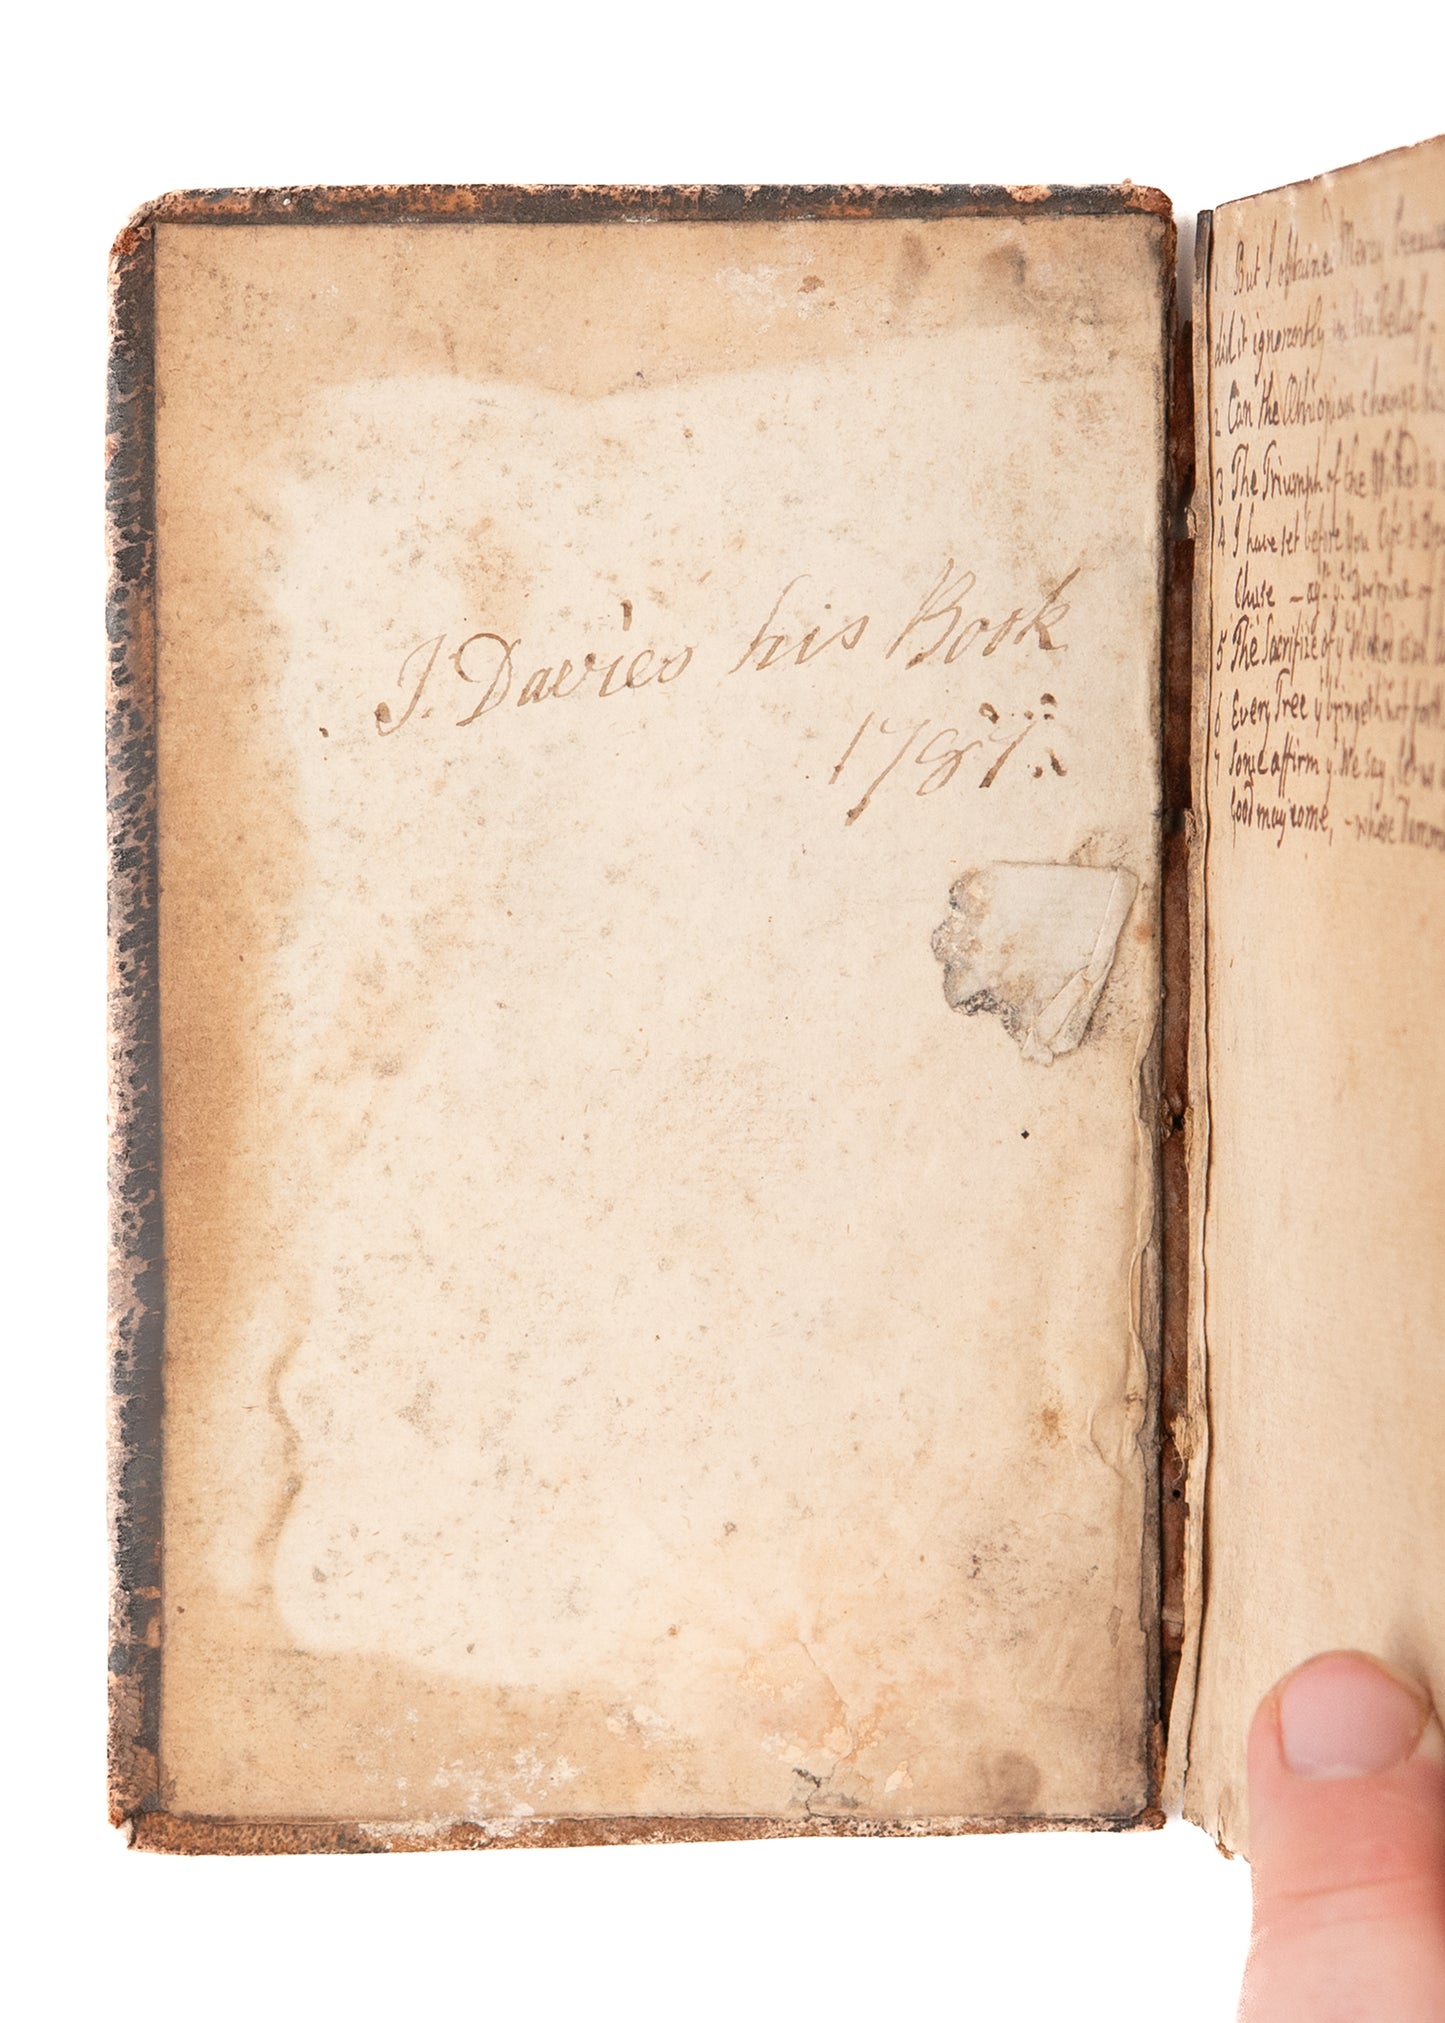 J. Davies his Book
1787.
1 But I obtained Mercy because
did it ignorantly in Unbelief.
2 Can the Æthiopian change his
3 The Triumph of the Wicked is
4 I have set before You life &
Chuse
5 The Sacrifize of y Wicked is
6 Every Tree y bringeth not forth
7 Some affirm y. We say, let us
Good may come, - whose